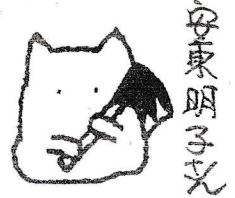 安東明子さん